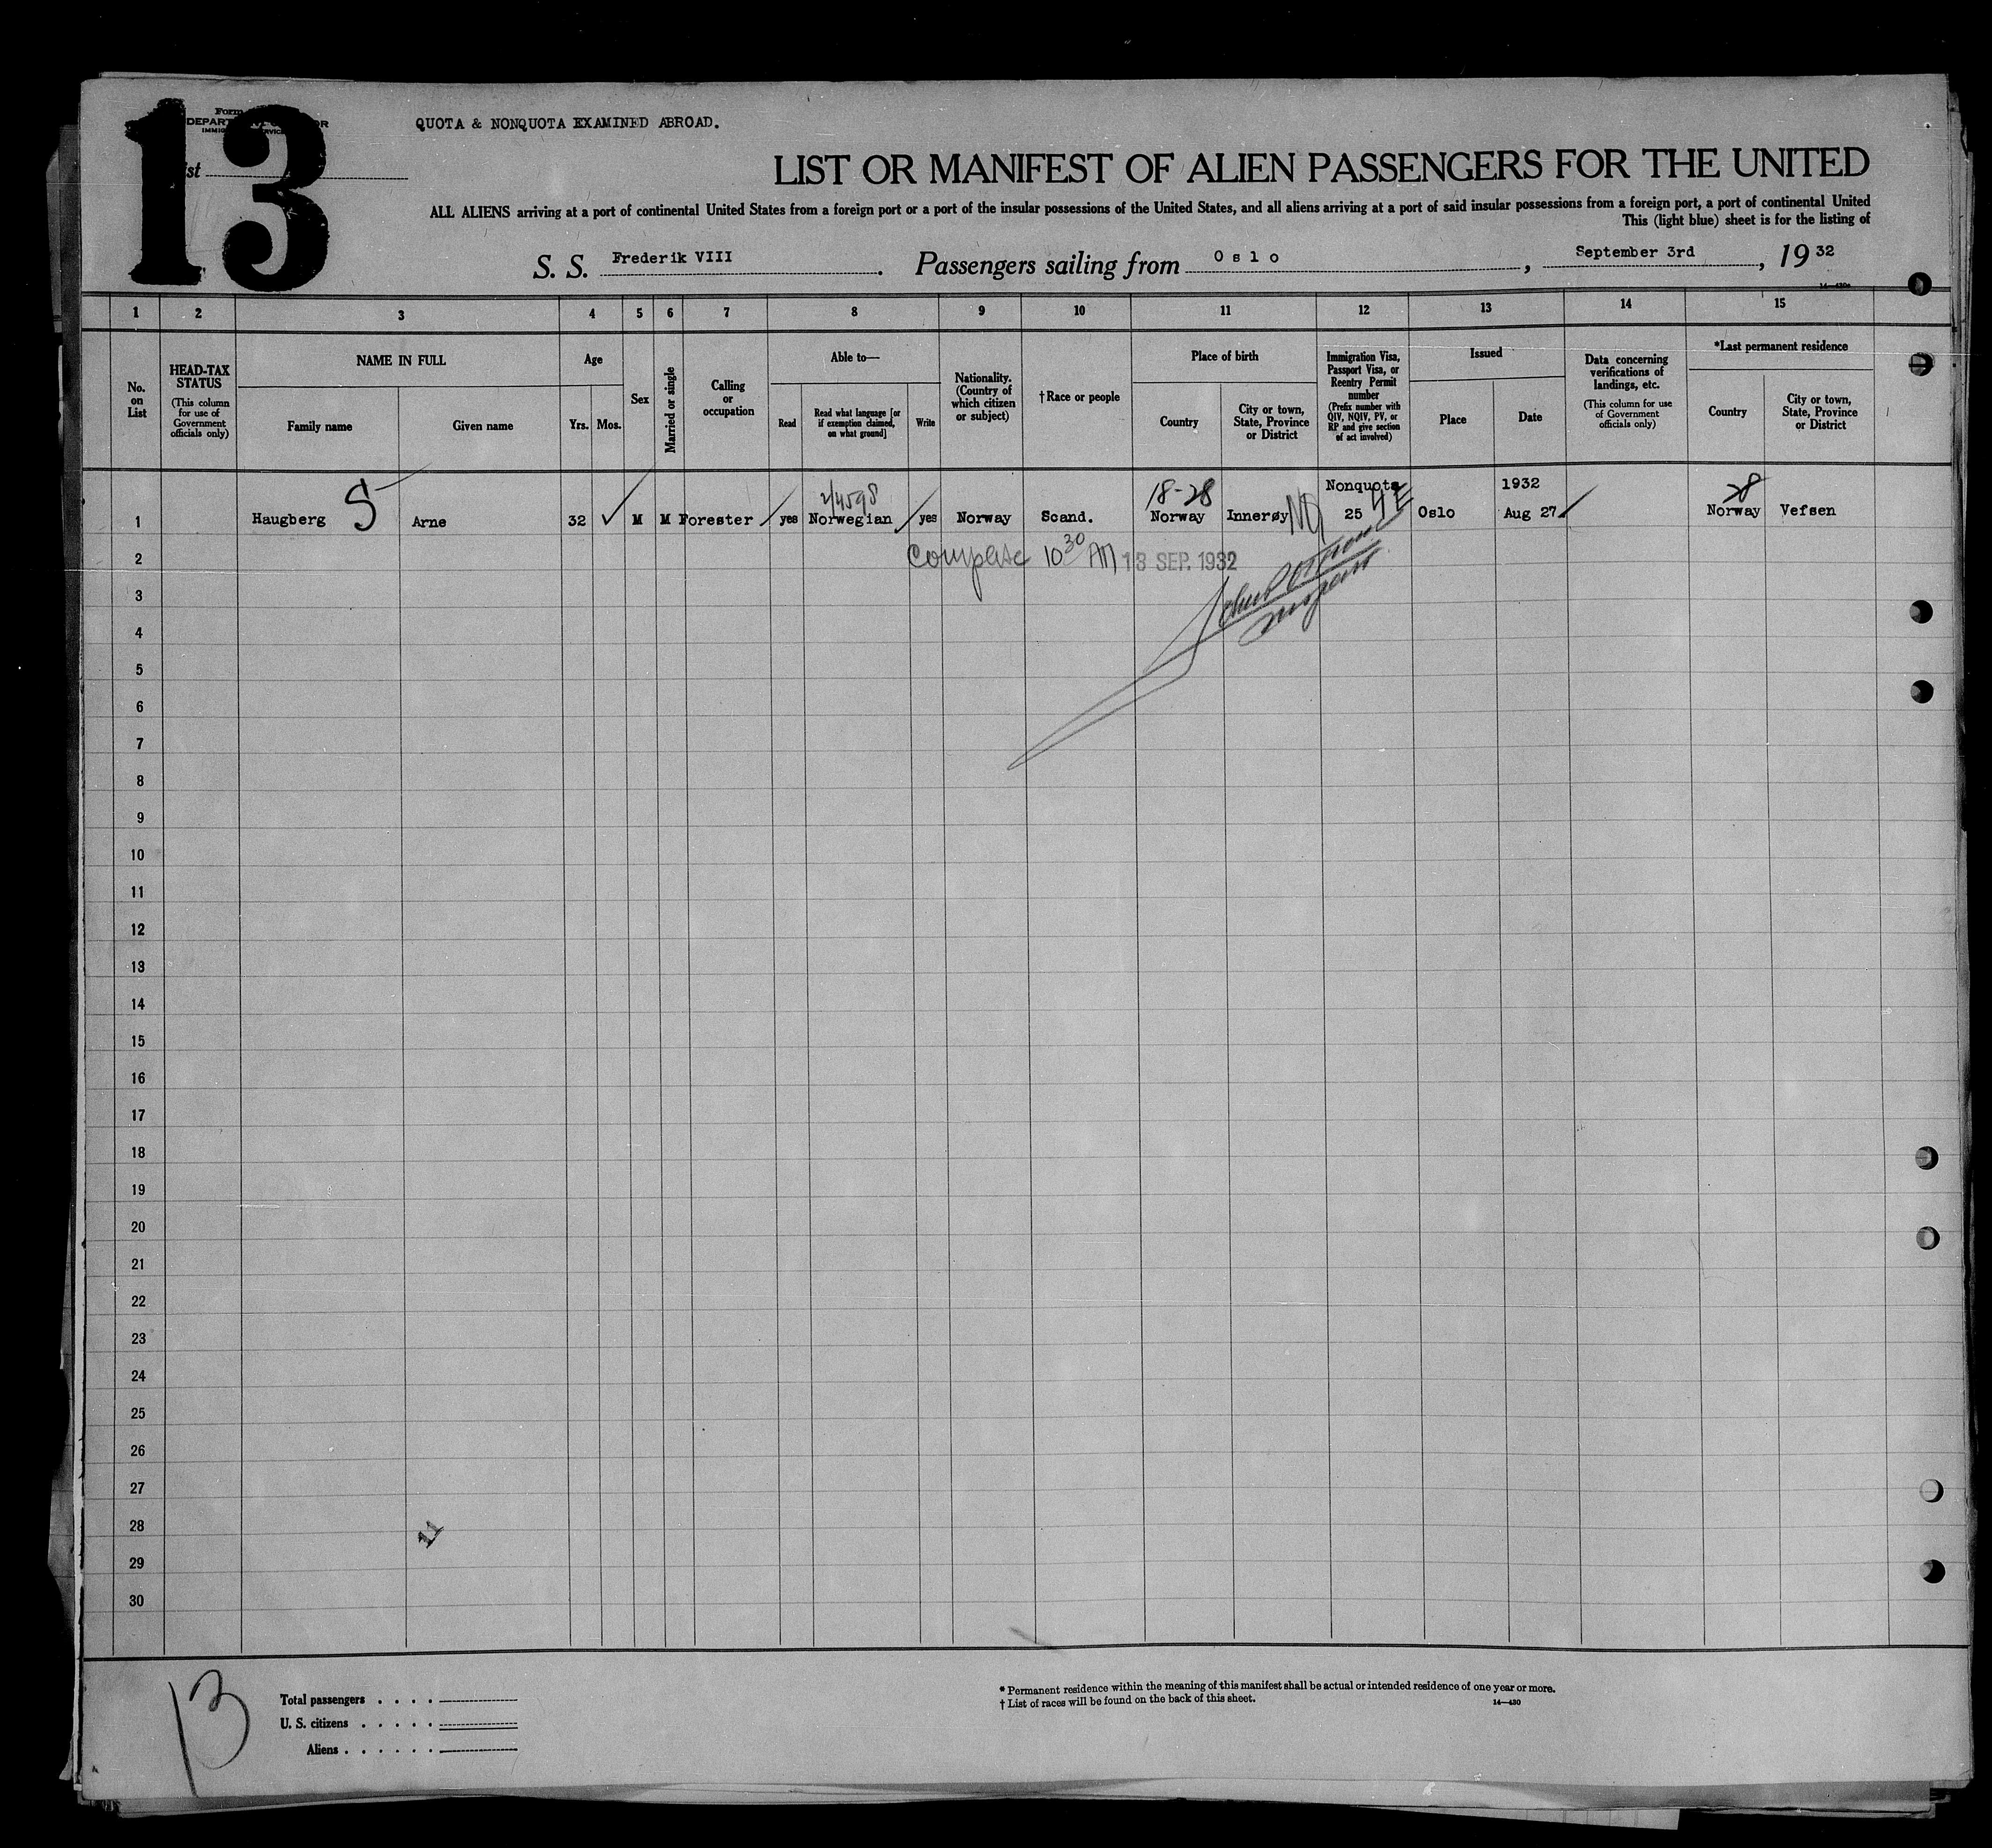 13
Form
DEPARTMENT OF LABOR
IMMIGRATION SERVICE
List
QUOTA & NONQUOTA EXAMINED ABROAD.
LIST OR MANIFEST OF ALIEN PASSENGERS FOR THE UNITED
ALL ALIENS arriving at a port of continental United States from a foreign port or a port of the insular possessions of the United States, and all aliens arriving at a port of said insular possessions from a foreign port, a port of continental United
This (light blue) sheet is for the listing of
S. S. Frederik VIII. Passengers sailing from Oslo, September 3rd, 1932
14—430a
1 2 3 4 5 6 7 8 9 10 11 12 13 14 15
No. on List
HEAD-TAX STATUS
(This column for use of Government officials only)
NAME IN FULL
Family name
Given name
Age
Yrs.
Mos.
Sex
Married or single
Calling or occupation
Able to—
Read
Read what language [or if exemption claimed, on what ground]
Write
Nationality. (Country of which citizen or subject)
†Race or people
Place of birth
Country
City or town, State, Province or District
Immigration Visa, Passport Visa, or Reentry Permit number
(Prefix number with QIV, NQIV, PV, or RP and give section of act involved)
Issued
Place
Date
Data concerning verifications of landings, etc.
(This column for use of Government officials only)
*Last permanent residence
Country
City or town, State, Province or District
2/4598 18-28 Nonquota 1932 28
1 Haugberg 5 Arne 32 M M Forester yes Norwegian yes Norway Scand. Norway Innerøy NQ 25 4E Oslo Aug 27 Norway Vefsen
2 Complete 10 30 AM 13 SEP. 1932
3
4
5
6
7
8
9
10
11
12
13
14
15
16
17
18
19
20
21
22
23
24
25
26
27
28
29
30
13
Total passengers . . . .
U. S. citizens . . . . .
Aliens . . . . . .
* Permanent residence within the meaning of this manifest shall be actual or intended residence of one year or more.
† List of races will be found on the back of this sheet.
14—430